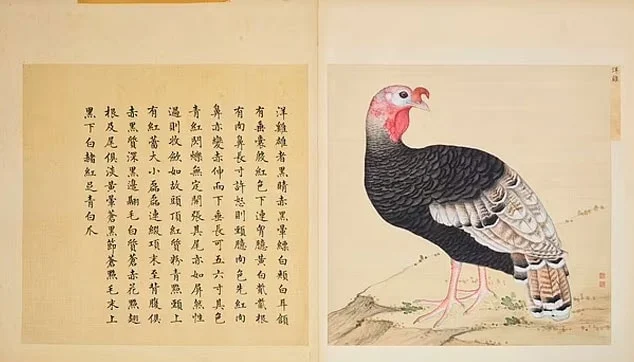 洋雞雄者黑睛赤黑暈綠白頰白耳頷
有垂囊皴紅色下連臆黃白根
有肉鼻長寸許怒則頸臆肉色先紅肉
鼻亦變赤伸而下垂長可五六寸其色
青紅閃爍無定開張其尾亦如屏然性
過則收斂如故頭頂紅質粉青點頸上
有紅蕾大小磊磊連綴項末至背腹俱
赤黑質深黑邊翮毛白質蒼赤花點翅
根及尾俱淡黃暈蒼黑節蒼點毛末上
黑下白赭紅足青白爪
洋雞